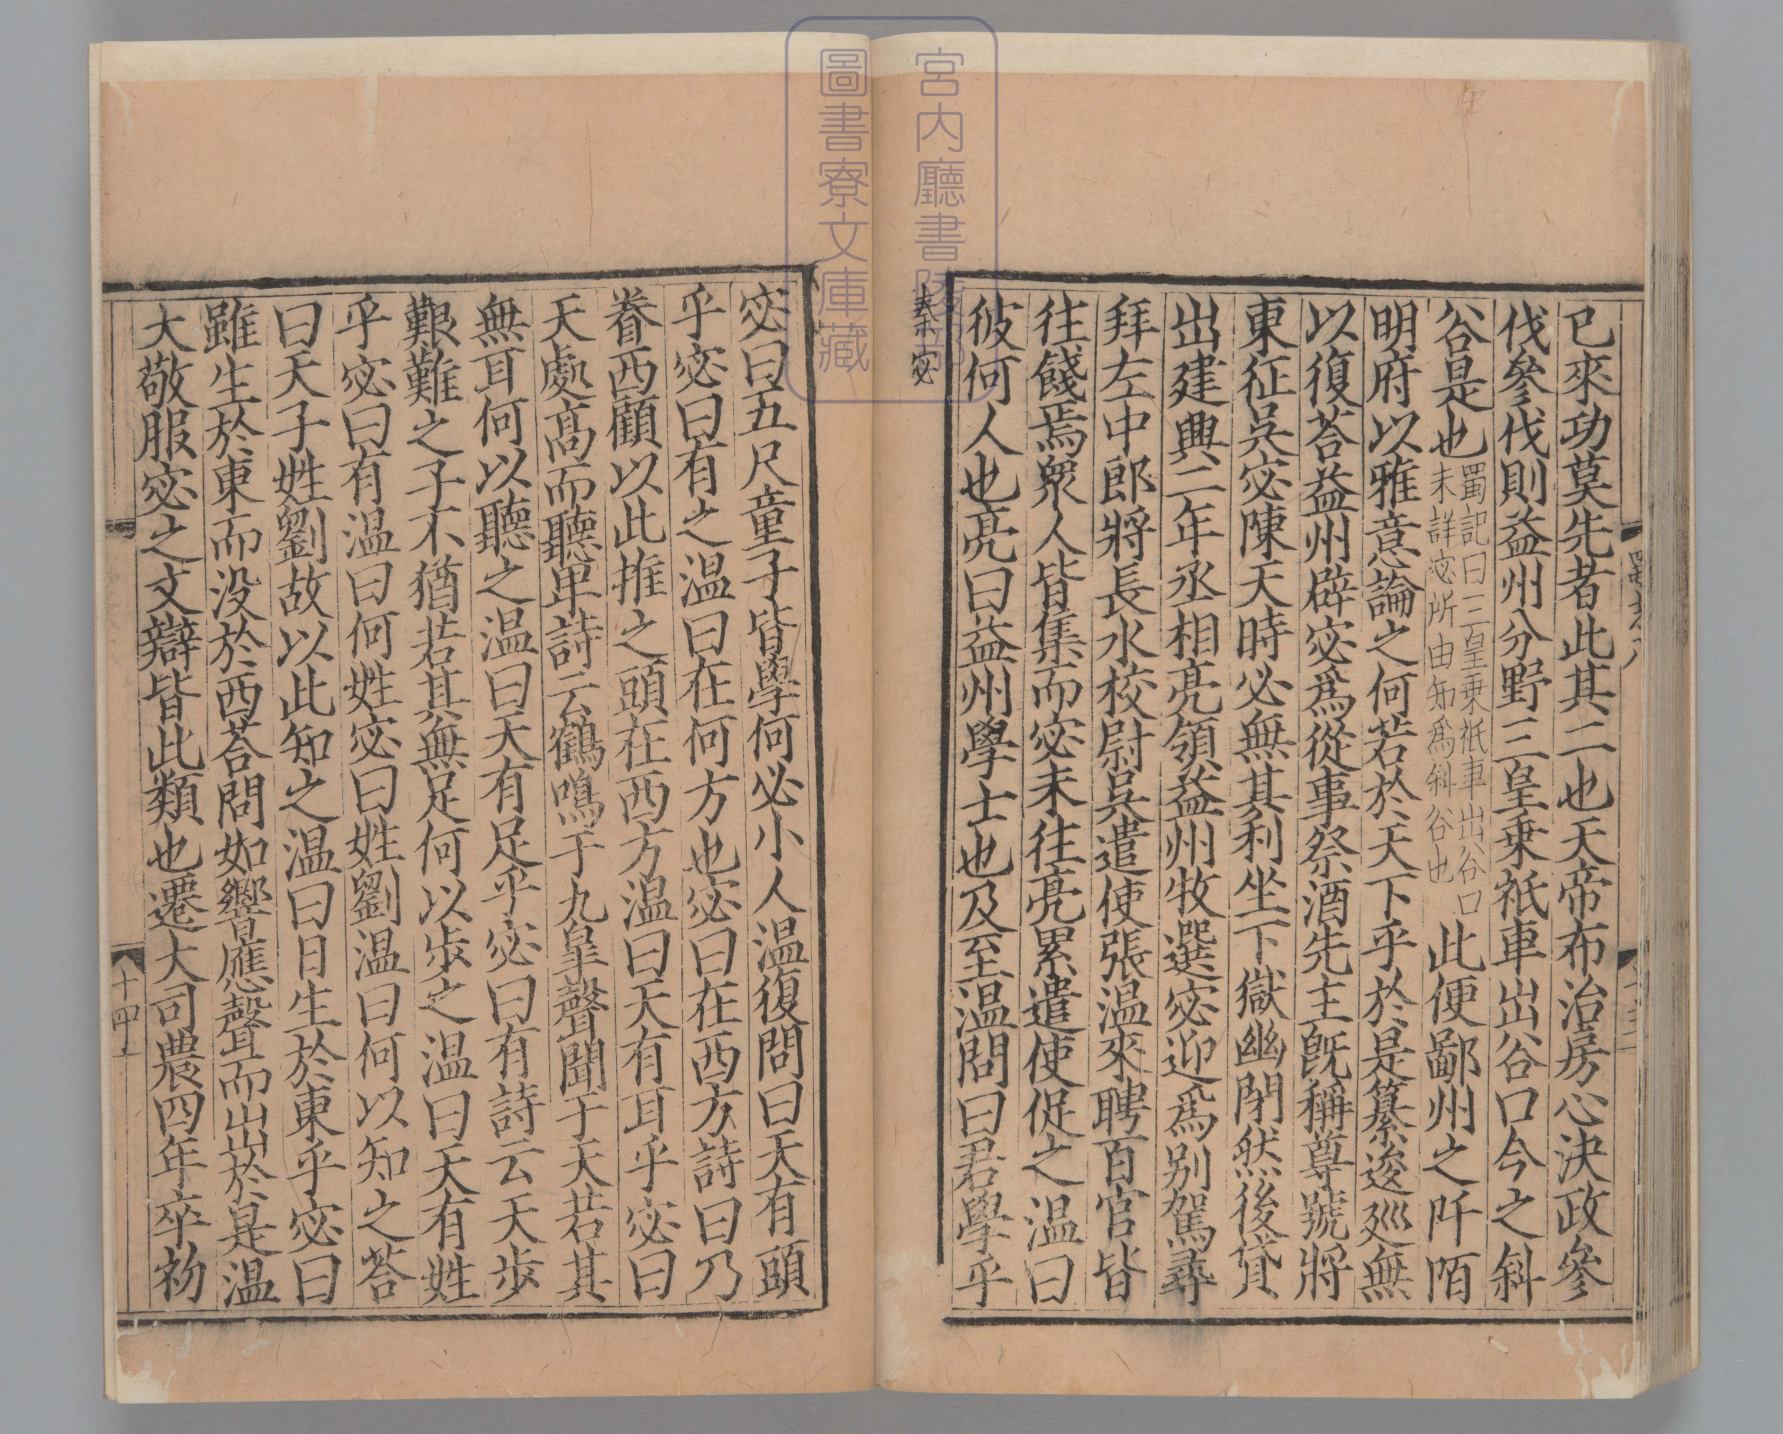 已來功莫先者此其二也天帝布治房心決政參
伐參伐則益州分野三皇乗祇車出谷口今之斜
谷是也
蜀記曰三皇乗祇車出谷口
未詳宓所由知爲斜谷也
此便鄙州之阡陌
明府以雅意論之何若於天下乎於是纂逡廵無
以復荅益州辟宓爲從事祭酒先主旣稱尊號將
東征吳宓陳天時必無其利坐下獄幽閉然後貸
出建興二年丞相亮領益州牧選宓迎爲别駕尋
拜左中郎將長水校尉吳遣使張温來聘百官皆
往餞焉衆人皆集而宓未往亮累遣使促之温曰
彼何人也亮曰益州學士也及至温問曰君學乎
秦宓
宓曰五尺童子皆學何必小人温復問曰天有頭
乎宓曰有之温曰在何方也宓曰在西方詩曰乃
眷西顧以此推之頭在西方温曰天有耳乎宓曰
天處髙而聽卑詩云鶴鳴于九皐聲聞于天若其
無耳何以聽之温曰天有足乎宓曰有詩云天步
艱難之子不猶若其無足何以步之温曰天有姓
乎宓曰有温曰何姓宓曰姓劉温曰何以知之荅
曰天子姓劉故以此知之温曰日生於東乎宓曰
雖生於東而没於西荅問如響應聲而出於是温
大敬服宓之文辯皆此類也遷大司農四年卒初
十四
宮内廳書陵部
圖書寮文庫藏